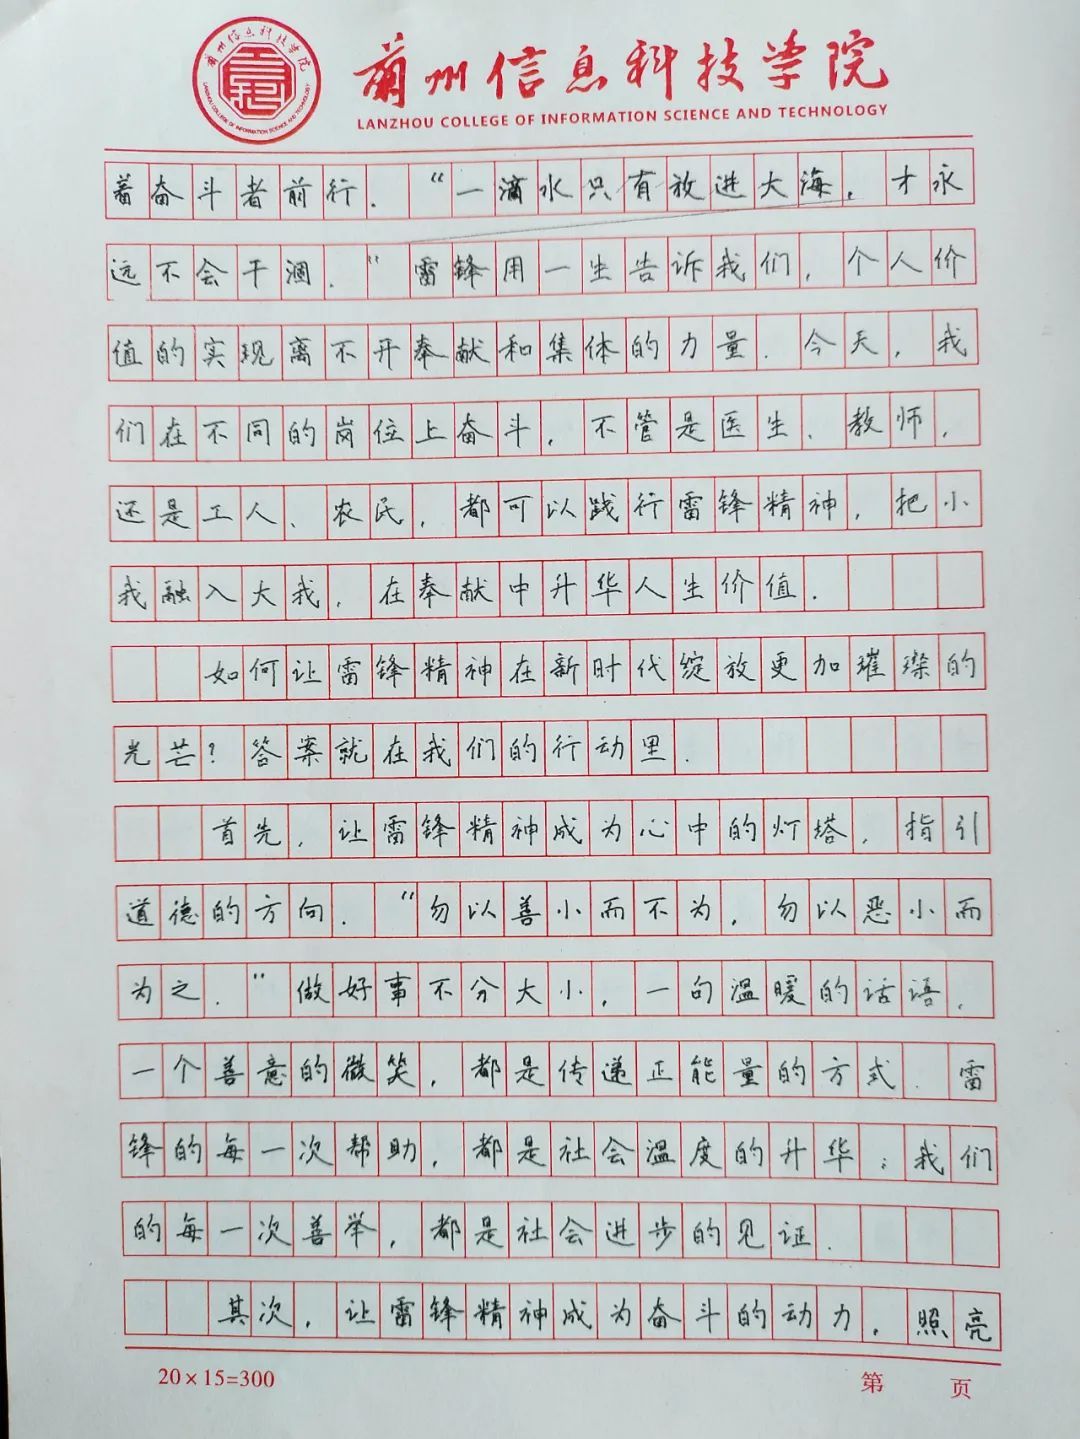 兰州信息科技学院
LANZHOU COLLEGE OF INFORMATION SCIENCE AND TECHNOLOGY
兰州信息科技学院
LANZHOU COLLEGE OF INFORMATION SCIENCE AND TECHNOLOGY
着奋斗者前行.“一滴水只有放进大海,才永
远不会干涸.”雷锋用一生告诉我们,个人价
值的实现离不开奉献和集体的力量.今天,我
们在不同的岗位上奋斗,不管是医生、教师,
还是工人、农民,都可以践行雷锋精神,把小
我融入大我,在奉献中升华人生价值.
如何让雷锋精神在新时代绽放更加璀璨的
光芒?答案就在我们的行动里.
首先,让雷锋精神成为心中的灯塔,指引
道德的方向.“勿以善小而不为,勿以恶小而
为之.”做好事不分大小,一句温暖的话语,
一个善意的微笑,都是传递正能量的方式.雷
锋的每一次帮助,都是社会温度的升华;我们
的每一次善举,都是社会进步的见证.
其次,让雷锋精神成为奋斗的动力,照亮
20×15=300
第 页